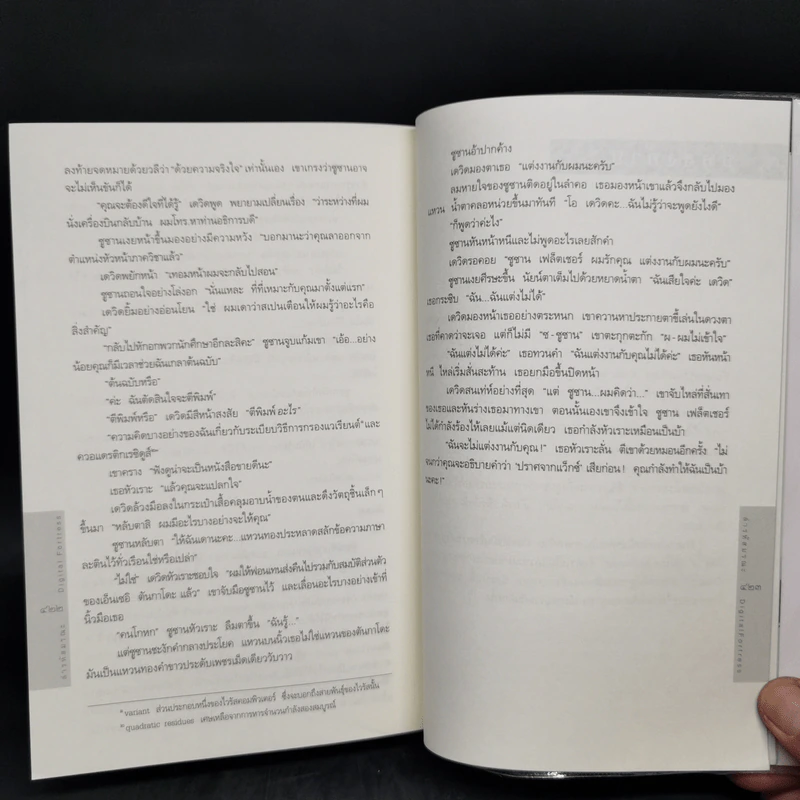 ลงท้ายจดหมายด้วยวลีว่า “ด้วยความจริงใจ” เท่านั้นเอง เขาเกรงว่าซูซานอาจ
จะไม่เห็นขันก็ได้
“คุณจะต้องดีใจที่ได้รู้” เดวิดพูด พยายามเปลี่ยนเรื่อง “ว่าระหว่างที่ผม
นั่งเครื่องบินกลับบ้าน ผมโทร.หาท่านอธิการบดี”
ซูซานเงยหน้าขึ้นมองอย่างมีความหวัง “บอกมานะว่าคุณลาออกจาก
ตำแหน่งหัวหน้าภาควิชาแล้ว”
เดวิดพยักหน้า “เทอมหน้าผมจะกลับไปสอน”
ซูซานถอนใจอย่างโล่งอก “นั่นแหละ ที่ที่เหมาะกับคุณมาตั้งแต่แรก”
เดวิดยิ้มอย่างอ่อนโยน “ใช่ ผมเดาว่าสเปนเตือนให้ผมรู้ว่าอะไรคือ
สิ่งสำคัญ”
“กลับไปหักอกพวกนักศึกษาอีกละสิคะ” ซูซานจูบแก้มเขา “เอ้อ...อย่าง
น้อยคุณก็มีเวลาช่วยฉันเกลาต้นฉบับ”
“ต้นฉบับหรือ”
“ค่ะ ฉันตัดสินใจจะตีพิมพ์”
“ตีพิมพ์หรือ” เดวิดมีสีหน้าสงสัย “ตีพิมพ์ อะไร”
“ความคิดบางอย่างของฉันเกี่ยวกับระเบียบวิธีการกรองแวเรียนต์ และ
ควอแดรติกเรซิดูส์”
เขาคราง “ฟังดูน่าจะเป็นหนังสือขายดีนะ”
เธอหัวเราะ “แล้วคุณจะแปลกใจ”
เดวิดล้วงมือลงในกระเป๋าเสื้อคลุมอาบน้ำของตนและดึงวัตถุชิ้นเล็ก ๆ
ขึ้นมา “หลับตาสิ ผมมีอะไรบางอย่างจะให้คุณ”
ซูซานหลับตา “ให้ฉันเดานะคะ...แหวนทองประหลาดสลักข้อความภาษา
ละตินไว้ทั่วเรือนใช่หรือเปล่า”
“ไม่ใช่” เดวิดหัวเราะชอบใจ “ผมให้ฟอนเทนส่งคืนไปรวมกับสมบัติส่วนตัว
ของเอ็นเซอิ ตันกาโดะ แล้ว” เขาจับมือซูซานไว้ และเลื่อนอะไรบางอย่างเข้าที่
นิ้วมือเธอ
“คนโกหก” ซูซานหัวเราะ ลืมตาขึ้น “ฉันรู้...”
แต่ซูซานชะงักคำกลางประโยค แหวนบนนิ้วเธอไม่ใช่แหวนของตันกาโดะ
มันเป็นแหวนทองคำขาวประดับเพชรเม็ดเดียววับวาว
variant ส่วนประกอบหนึ่งของไวรัสคอมพิวเตอร์ ซึ่งจะบอกถึงสายพันธุ์ของไวรัสนั้น
quadratic residues เศษเหลือจากการหารจำนวนกำลังสองสมบูรณ์
๕๒๒
Digital Fortress
ซูซานอ้าปากค้าง
เดวิดมองตาเธอ “แต่งงานกับผมนะครับ”
ลมหายใจของซูซานติดอยู่ในลำคอ เธอมองหน้าเขาแล้วจึงกลับไปมอง
แหวน น้ำตาคลอหน่วยขึ้นมาทันที “โอ เดวิดคะ...ฉันไม่รู้ว่าจะพูดยังไงดี”
“ก็พูดว่าค่ะไง”
ซูซานหันหน้าหนีและไม่พูดอะไรเลยสักคำ
เดวิดรอคอย “ซูซาน เฟล็ตเชอร์ ผมรักคุณ แต่งงานกับผมนะครับ”
ซูซานเงยศีรษะขึ้น นัยน์ตาเต็มไปด้วยหยาดน้ำตา “ฉันเสียใจค่ะ เดวิด”
เธอกระซิบ “ฉัน...ฉันแต่งไม่ได้”
เดวิดมองหน้าเธออย่างตระหนก เขาควานหาประกายตาขี้เล่นในดวงตา
เธอที่คาดว่าจะเจอ แต่ก็ไม่มี “ซ-ซูซาน” เขาตะกุกตะกัก “ผ-ผมไม่เข้าใจ”
“ฉันแต่งไม่ได้ค่ะ” เธอทวนคำ “ฉันแต่งงานกับคุณไม่ได้ค่ะ” เธอหันหน้า
หนี ไหล่เริ่มสั่นสะท้าน เธอยกมือขึ้นปิดหน้า
เดวิดสนเท่ห์อย่างที่สุด “แต่ ซูซาน...ผมคิดว่า...” เขาจับไหล่ที่สั่นเทา
ของเธอและหันร่างเธอมาทางเขา ตอนนั้นเองเขาจึงเข้าใจ ซูซาน เฟล็ตเชอร์
ไม่ได้กำลังร้องไห้เลยแม้แต่นิดเดียว เธอกำลังหัวเราะเหมือนเป็นบ้า
“ฉันจะไม่แต่งงานกับคุณ!” เธอหัวเราะลั่น ตีเขาด้วยหมอนอีกครั้ง “ไม่
จนกว่าคุณจะอธิบายคำว่า ‘ปราศจากแว็กซ์’ เสียก่อน! คุณกำลังทำให้ฉันเป็นบ้า
นะคะ!”
๕๒๓
Digital Fortress